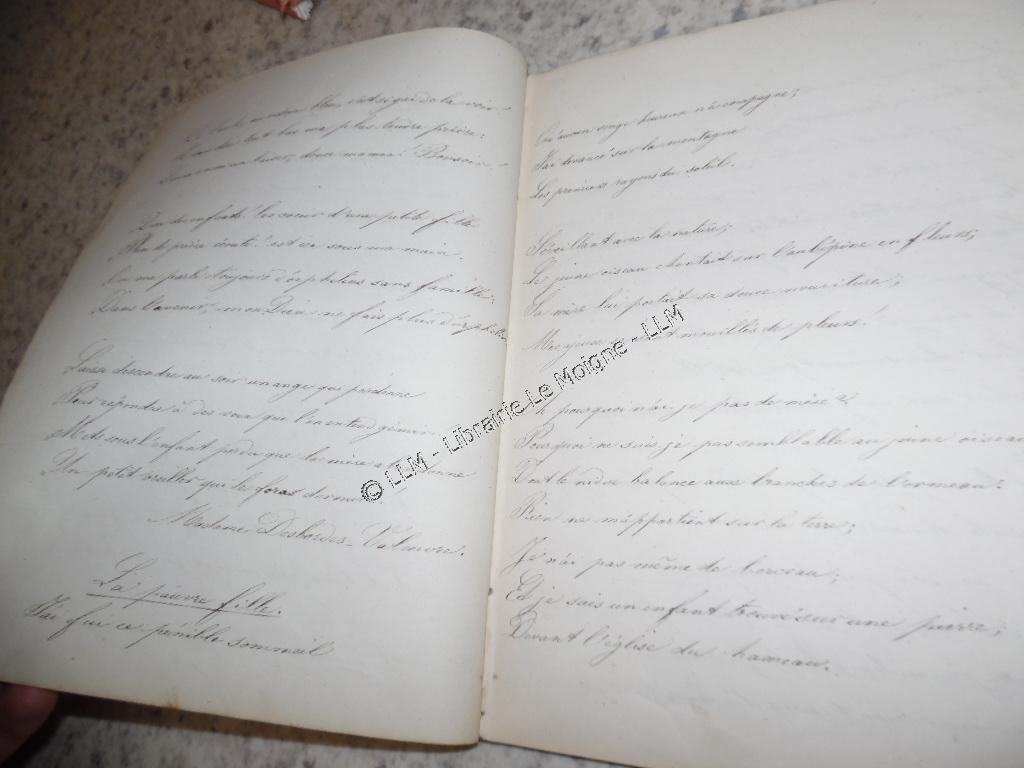 plus tendre prière:
doux maman! Bonsoir.
Dieu des enfants! le coeur d'une petite fille
Plein de prière écoute! est ici sous ma main.
On me parle toujours d'orphelins sans famille:
Dans l'avenir, mon Dieu ne fais plus d'orphelins.
Laisse descendre au soir un ange qui pardonne
Pour répondre à des voix que l'on entend gémir
Mets sous l'enfant perdu que la mère
Un petit oreiller qui le feras dormir
Madame Desbordes-Valmore.
La pauvre fille.
J'ai fui ce pénible sommeil
Qu'aucun songe heureux n'accompagne;
J'ai devancé sur la montagne
Les premiers rayons du soleil.
S'éveillant avec la nature,
Le jeune oiseau chantait sur l'aubépine en fleurs;
Sa mère lui portait sa douce nourriture;
Mes yeux mouillés de pleurs!
pourquoi n'ai-je pas de mère?
Pourquoi ne suis-je pas semblable au jeune oiseau
Dont le nid se balance aux branches de l'ormeau?
Rien ne m'appartient sur la terre;
Je n'ai pas même de berceau;
Et je suis un enfant trouvé sur une pierre;
Devant l'église du hameau.
© LLM - Librairie Le Moigne - LLM